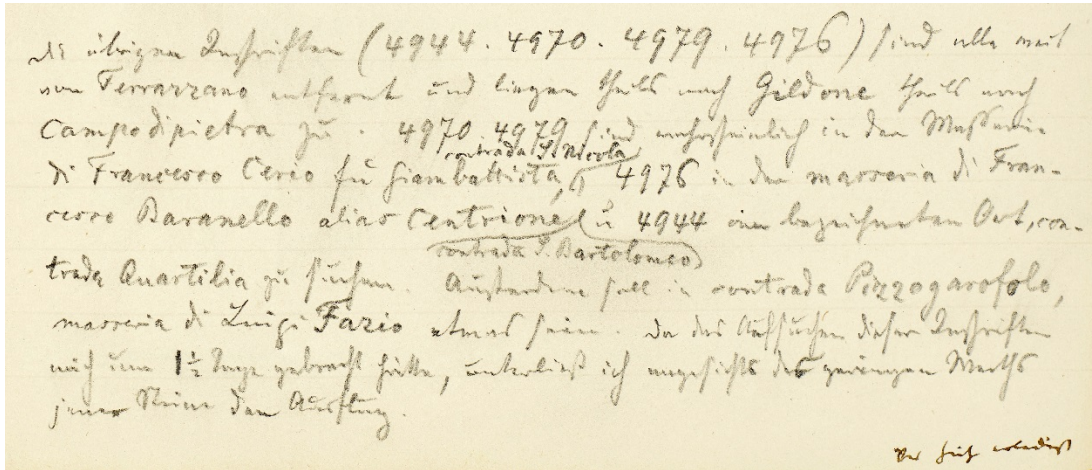 Die übrigen Inschriften (4944. 4970. 4979. 4976) sind alle weit
von Ferrazzano entfernt und liegen theils nach Gildone theils nach
Campodipietra zu. 4970. 4979 sind wahrscheinlich in der Masseria
contrada S. Nicola
di Francesco Cerio fu Giambattista, 4976 in der masseria di Fran-
cesco Baranello alias Centrione u. 4944 am bezeichneten Ort, con-
contrada S. Bartolomeo
trada Quartilia zu suchen. Außerdem soll in contrada Pizzogarofolo,
masseria di Luigi Fazio etwas sein. Da das Aufsuchen dieser Inschriften
mich um 1½ Tage gebracht hätte, unterließ ich angesichts des geringen Werths
jener Steine den Ausflug.
erledigt